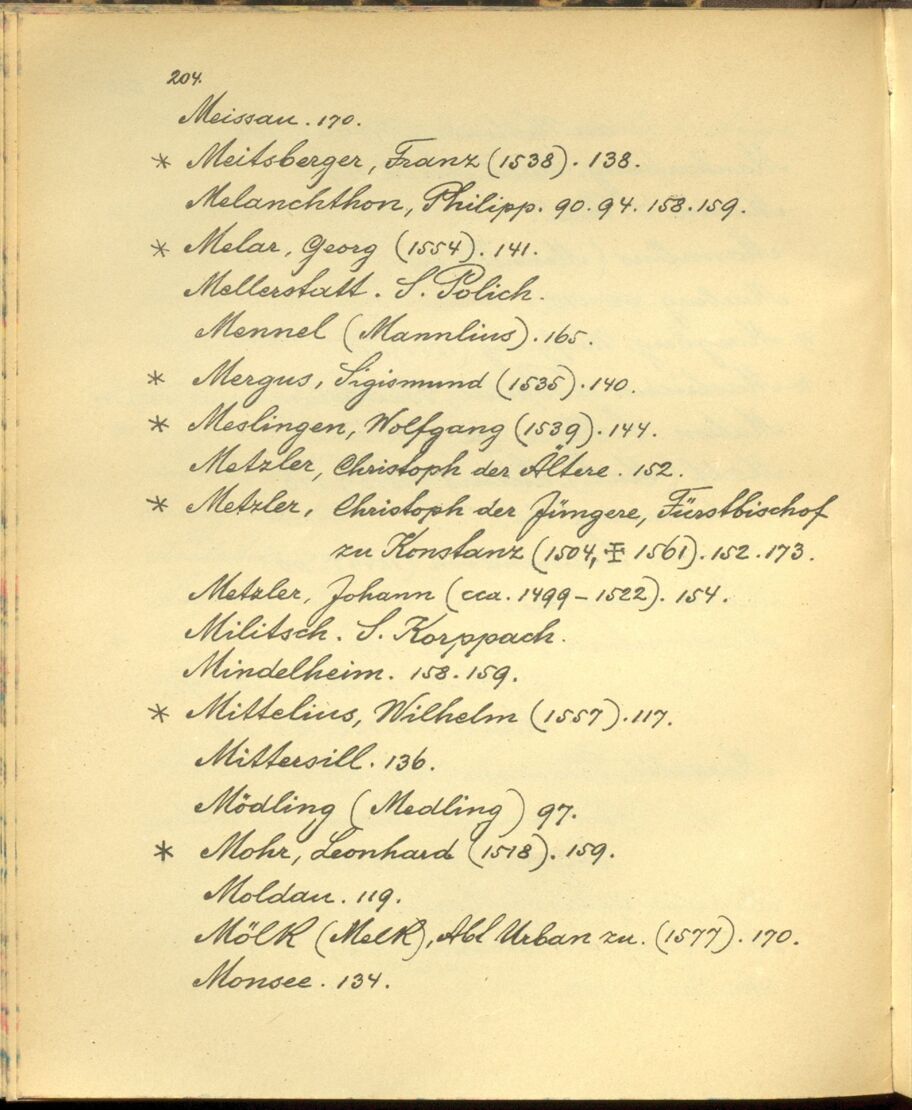 204.
Meissau. 170.
* Meitsberger, Franz (1538). 138.
Melanchthon, Philipp. 90. 94. 158. 159.
* Melar, Georg (1554). 141.
Mellerstatt. S. Polich.
Mennel (Mannlius). 165.
* Mergus, Sigismund (1535). 140.
* Meslingen, Wolfgang (1539). 144.
Metzler, Christoph der Ältere. 152.
* Metzler, Christoph der Jüngere, Fürstbischof
zu Konstanz (1504, ✠ 1561). 152. 173.
Metzler, Johann (cca. 1499-1522). 154.
Militsch. S. Korppach.
Mindelheim. 158. 159.
* Mittelius, Wilhelm (1557). 117.
Mittersill. 136.
Mödling (Medling) 97.
* Mohr, Leonhard (1518). 159.
Moldau. 119.
Mölk (Melk), Abt Urban zu. (1577). 170.
Monsee. 134.